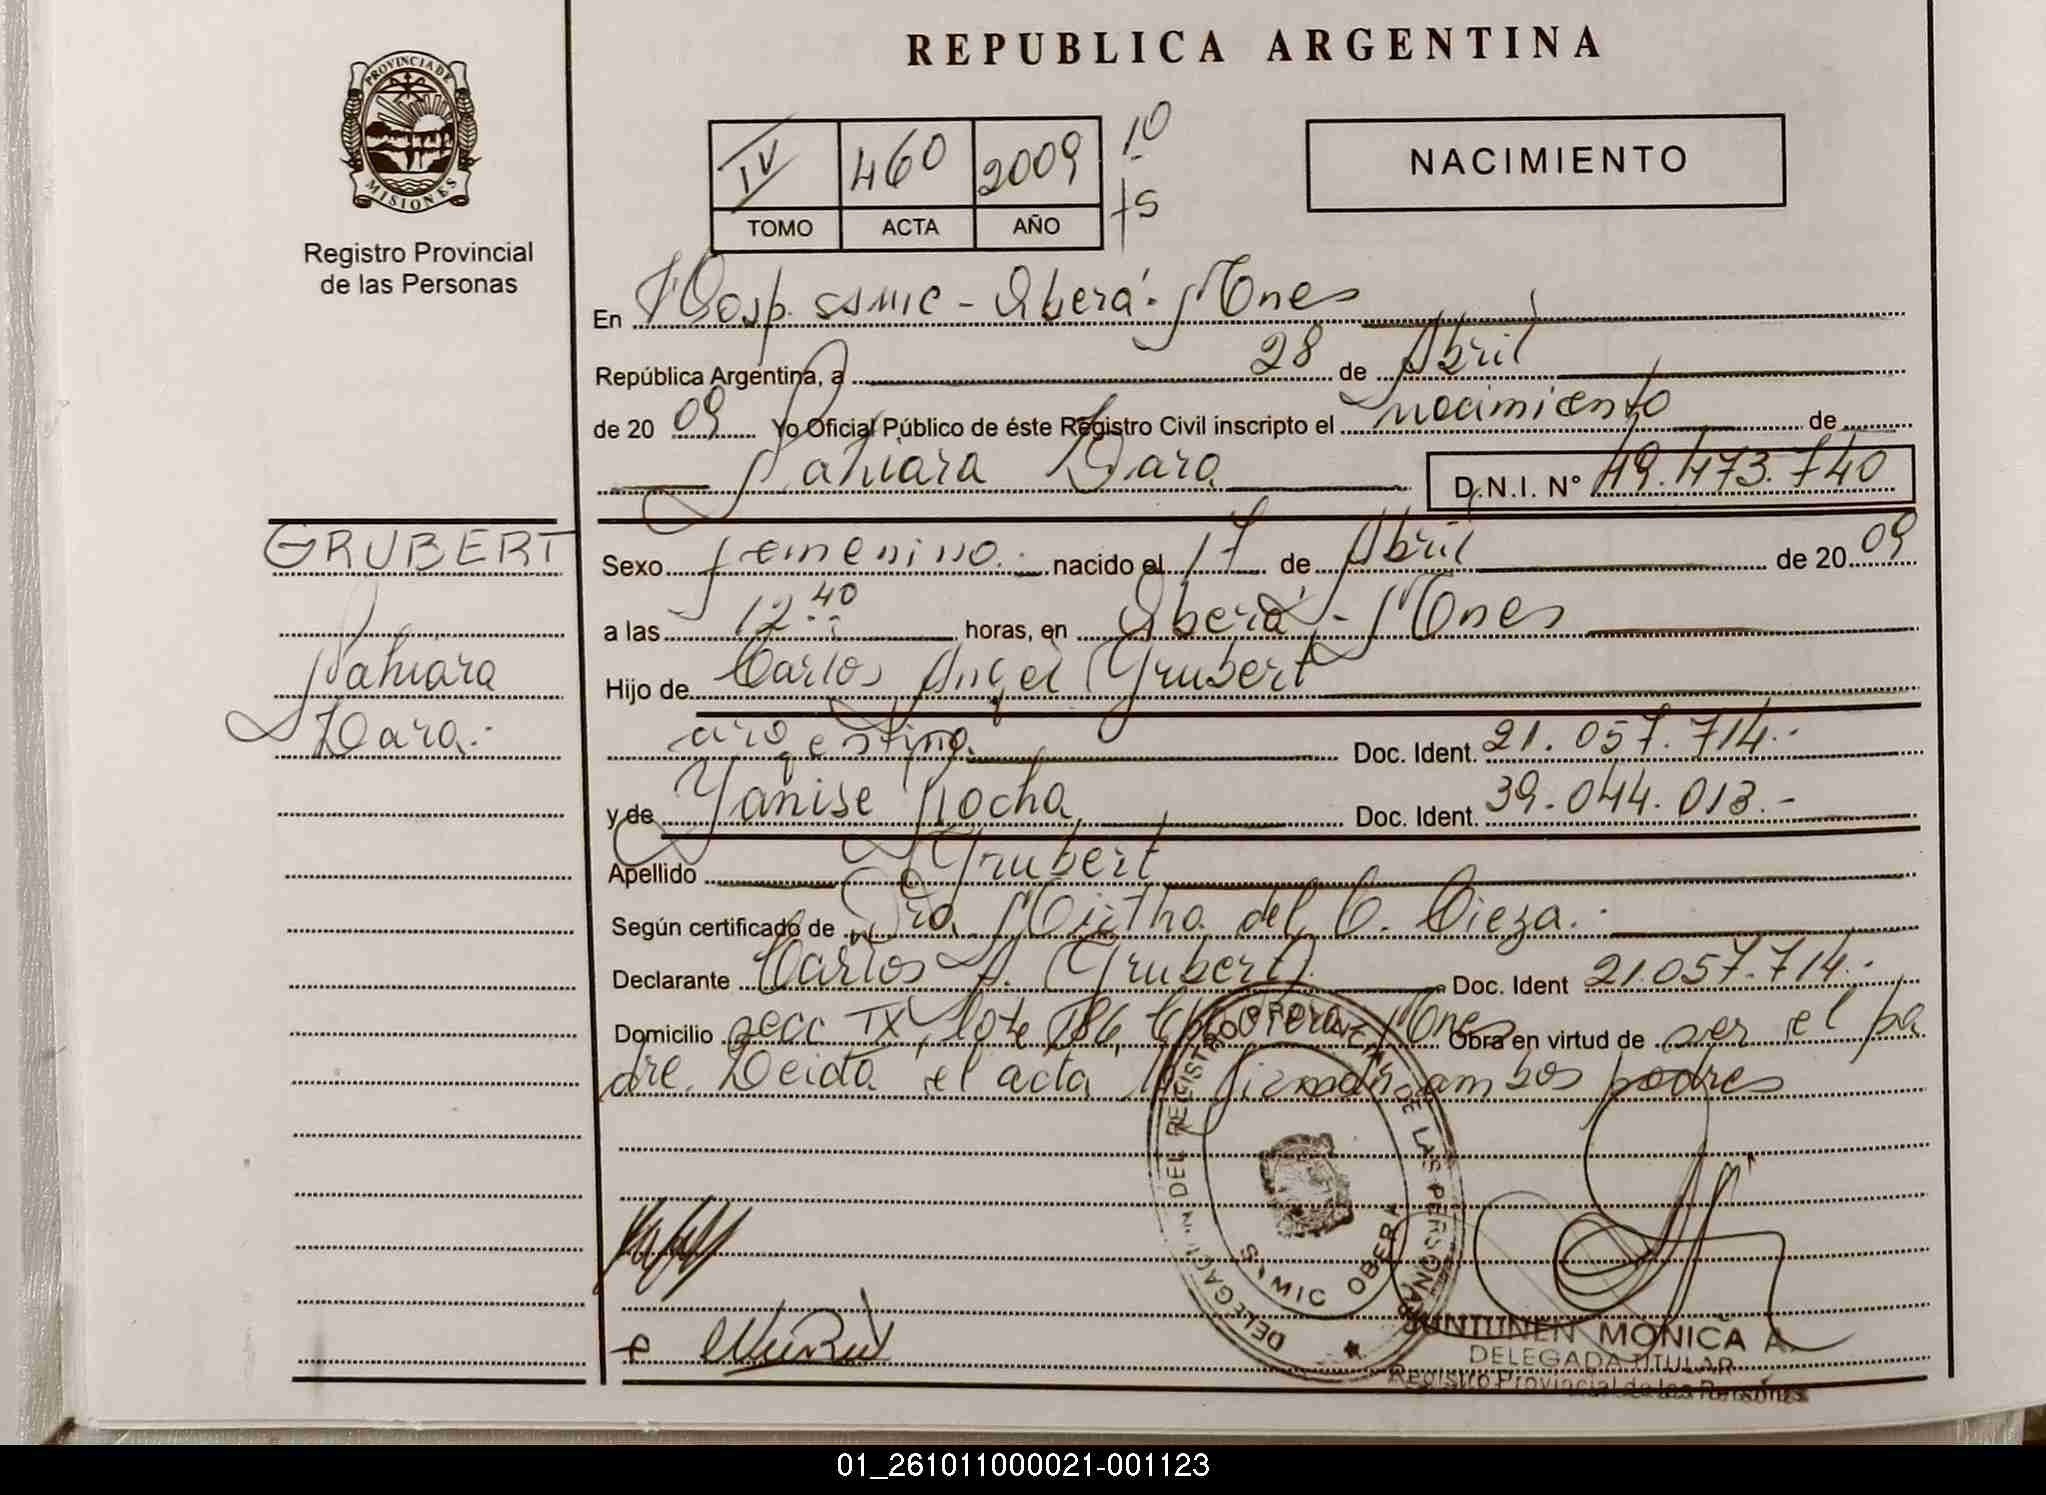 REPUBLICA ARGENTINA
PROVINCIA DE
MISIONES
Registro Provincial
de las Personas
IV 460 2009 10
TOMO ACTA AÑO fs
NACIMIENTO
En Hosp. SAMIC - Oberá - Mnes
República Argentina, a 28 de Abril
de 2009 Yo Oficial Público de éste Registro Civil inscripto el nacimiento de
Nahiara Dara D.N.I. Nº 49.473.740
GRUBERT
Nahiara
Dara.-
Sexo femenino. nacido el 17 de Abril de 2009
a las 12 40 horas, en Oberá - Mnes
Hijo de Carlos Angel Grubert
argentino. Doc. Ident. 21.057.714.-
y de Yanise Rocha Doc. Ident. 39.044.013.-
Apellido Grubert
Según certificado de Dra Mirtha del C. Cieza.-
Declarante Carlos A. Grubert Doc. Ident 21.057.714.-
Domicilio secc IX, lote 186, Oberá Mnes Obra en virtud de ser el pa
dre. Leida el acta la firman ambos padres
DELEGACION DEL REGISTRO PROVINCIAL DE LAS PERSONAS
SAMIC OBERA
MONICA A.
DELEGADA TITULAR
Registro Provincial de las Personas
01_261011000021-001123